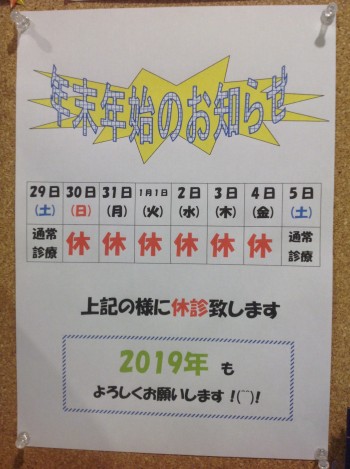 年末年始のお知らせ
29日 30日 31日 1月1日 2日 3日 4日 5日
(土) (日) (月) (火) (水) (木) (金) (土)
通常診療 休 休 休 休 休 休 通常診療
上記の様に休診致します
2019年 も
よろしくお願いします!(⌒)!